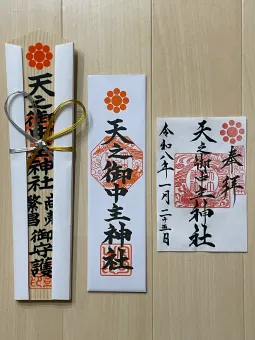 天之御中主神社
商売
繁昌
御守護
天之御中主神社
奉拝
天之御中主神社
令和八年一月二十五日